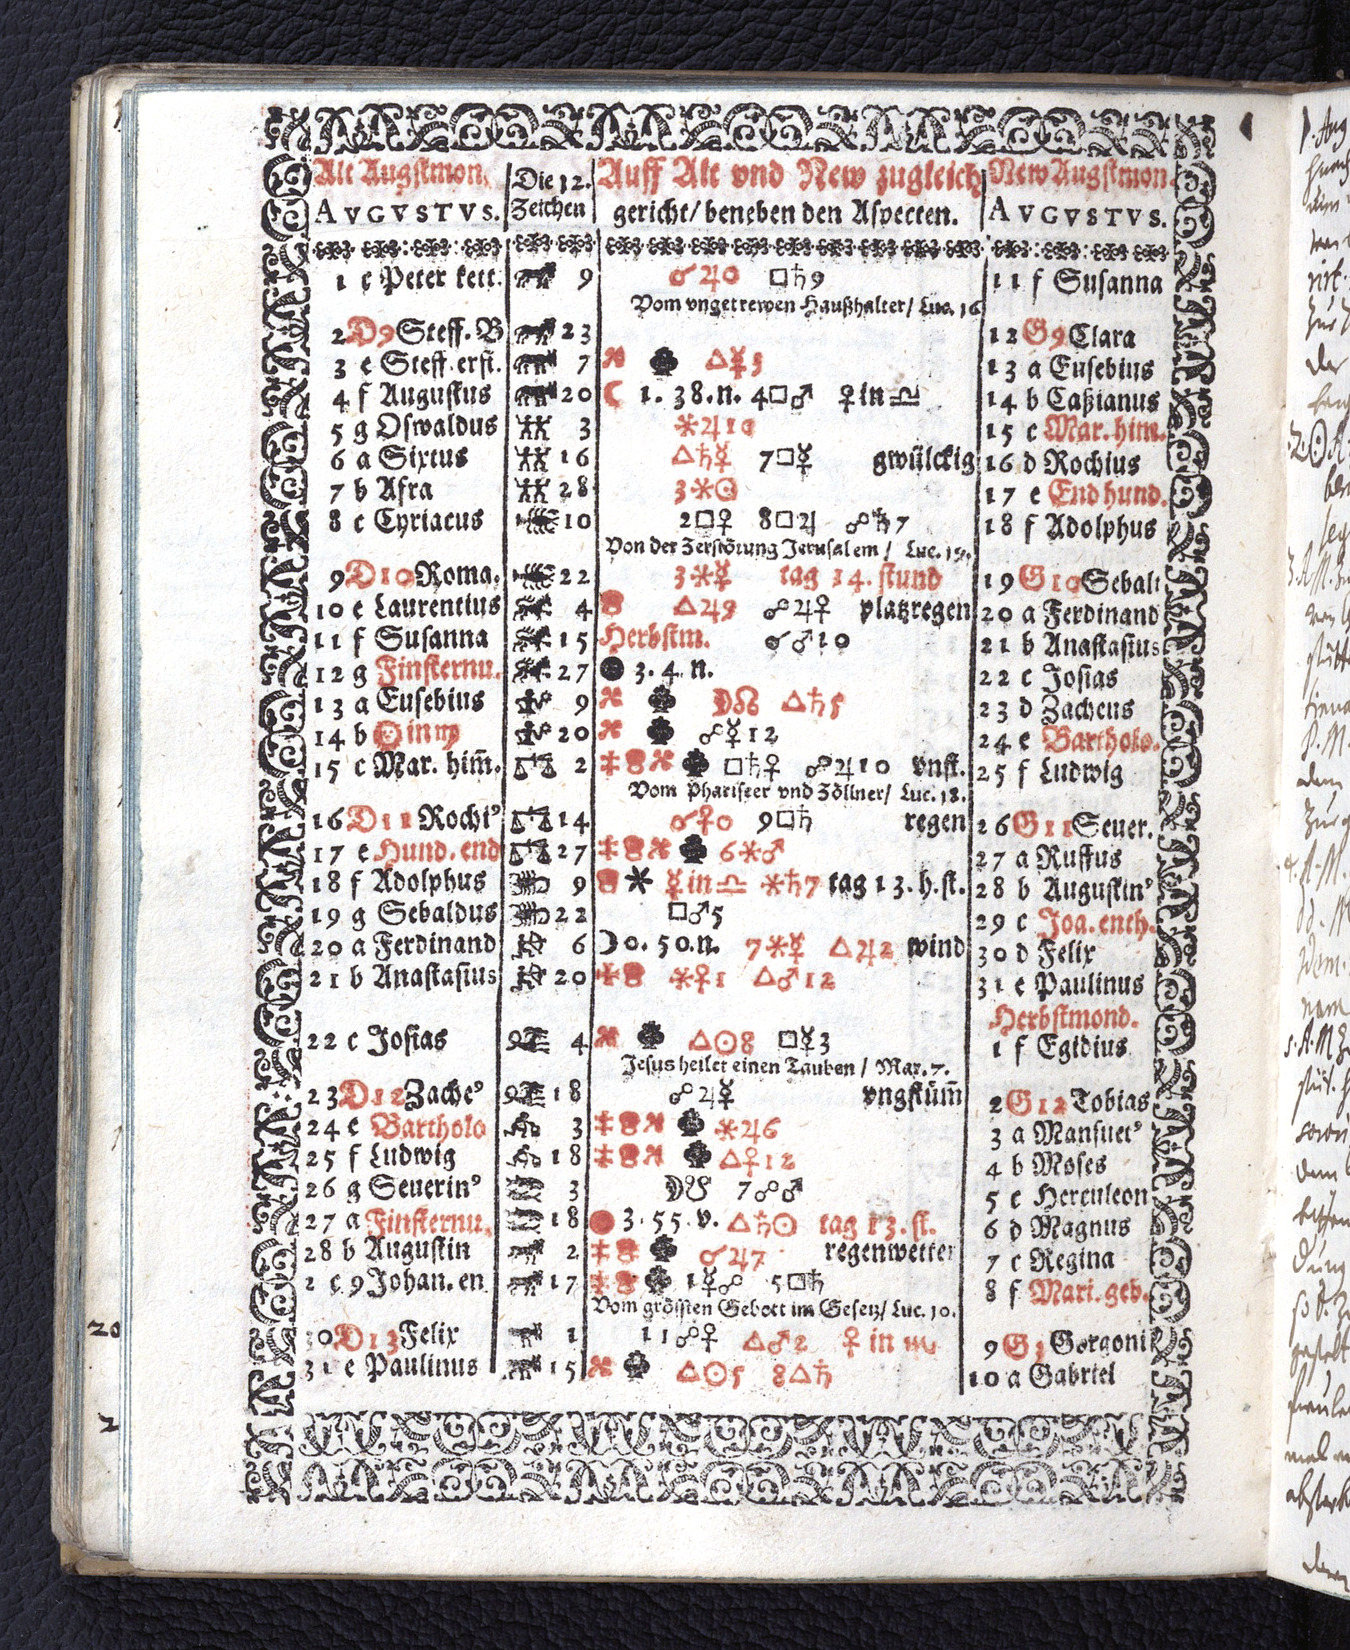 Alt Augstmon. Die 12. Auff Alt vnd New zugleich New Augstmon.
AVGVSTVS. Zeichen gericht/ beneben den Aspecten. AVGVSTVS.
1 c Peter kett. 9 ☌♃0 □♄9 11 f Susanna
Vom vngetrewen Haußhalter/ Luc. 16
2 D9 Steff. B 23 12 G9 Clara
3 e Steff. erfi. 7 △☿5 13 a Eusebius
4 f Augustus 20 ☾ 1. 38. n. 4□♂ ♀ in ♎ 14 b Caßianus
5 g Oswaldus 3 ⚹♃10 15 c Mar. him.
6 a Sixtus 16 △♄☿ 7□☿ gwülckig 16 d Rochius
7 b Afra 28 3⚹☉ 17 e End hund.
8 c Cyriacus 10 2□♀ 8□♃ ☍♄7 18 f Adolphus
Von der Zerstörung Jerusalem/ Luc. 19.
9 D10 Roma. 22 3⚹☿ tag 14. stund 19 G10 Sebalt
10 e Laurentius 4 △♃9 ☍♃♀ platzregen 20 a Ferdinand
11 f Susanna 15 Herbstm. ☌♂10 21 b Anastasius
12 g Finsternu. 27 ● 3. 4. n. 22 c Josias
13 a Eusebius 9 ☽☊ △♄5 23 d Zacheus
14 b ☉ in ♍ 20 ☍☿12 24 e Bartholo.
15 c Mar. him̃. 2 □♄♀ ☍♃10 vnst. 25 f Ludwig
Vom Phariseer vnd Zöllner/ Luc. 18.
16 D11 Rochi⁹ 14 ☌♀0 9□♄ regen 26 G11 Seuer.
17 e Hund. end 27 6⚹♂ 27 a Ruffus
18 f Adolphus 9 ☿ in ♎ ⚹♄7 tag 13. h. st. 28 b Augustin⁹
19 g Sebaldus 22 □♂5 29 c Joa. enth.
20 a Ferdinand 6 ☽ 0. 50. n. 7⚹☿ △♃2 wind 30 d Felix
21 b Anastasius 20 ⚹♀1 △♂12 31 e Paulinus
Herbstmond.
22 c Josias 4 △☉8 □☿3 1 f Egidius
Jesus heilet einen Tauben/ Mar. 7.
23 D12 Zache⁹ 18 ☍♃☿ vngstüm̃ 2 G12 Tobias
24 e Bartholo 3 ⚹♃6 3 a Mansuet⁹
25 f Ludwig 18 △♀12 4 b Moses
26 g Seuerin⁹ 3 ☽☋ 7☍♂ 5 c Herculeon
27 a Finsternu. 18 3. 55. v. △♄☉ tag 13. st. 6 d Magnus
28 b Augustin 2 ☌♃7 regenwetter 7 e Regina
2 c 9 Johan. en 17 1☿☍ 5□♄ 8 f Mari. geb.
Vom grössten Gebott im Gesetz/ Luc. 10.
30 D13 Felix 1 11☍♀ △♂2 ♀ in ♏ 9 G Gorgoni
31 e Paulinus 15 △☉5 8△♄ 10 a Gabriel
20
2